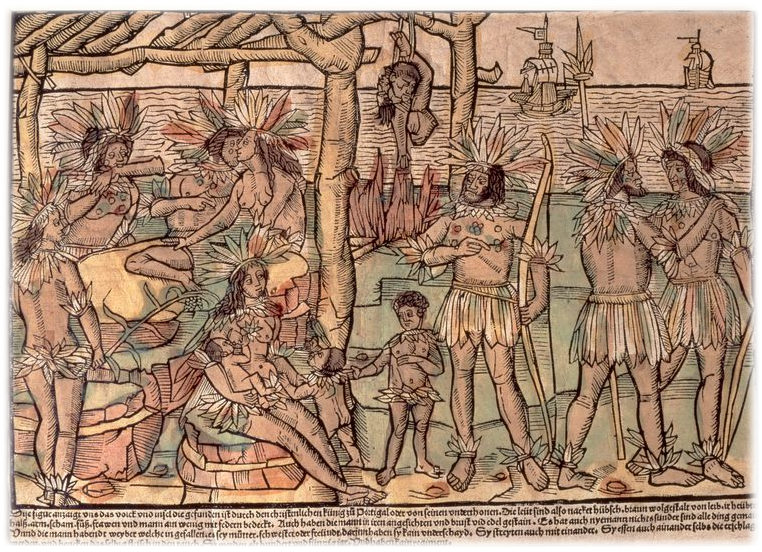 Dise figur anzaigt uns das volck und insel die gefunden ist durch den christenlichen künig zů Portigal oder von seinen underthonen. Die leüt sind also nacket hübsch. braun wolgestalt von leib. ir heübter
halß. arm. scham. füß. frawen und mann ain wenig mit federn bedeckt. Auch haben die mann in iren angesichten und brust vil edel gestain. Es hat auch nyemann nichts sunder sind alle ding gemain
Unnd die mann habendt weyber welche in gefallen. es sey můtter, schwester oder freündt. darinn haben sy kain underschayd. Sy streyten auch mit einander. Sy essen auch ainander selbs die erschlagen